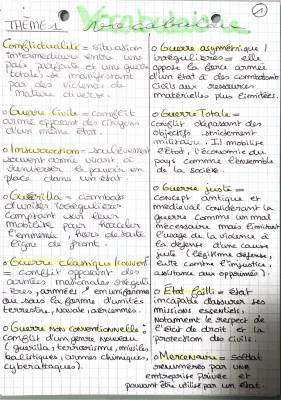 1
THÈME 1 Vocabulaire
Conflictualité = situation
intermédiaire entre une
paix parfaite et une guerre
totale, se manifestant
par des violences de
nature diverse.
o Guerre Civile = conflit
armé opposant des citoyens
d'un même état.
o Insurrection = soulèvement
souvent armé visant à
renverser le pouvoir en
place dans un état.
o Guérilla = combat
d'unités irrégulières
comptant sur leur
mobilité pour harceler
l'ennemie, hors de toute
ligne de front.
o Guerre classique/convent
= conflit opposant des
armées nationales régulières
, armées en uniformes
ou sous la forme d'unités
terrestre, navale, aériennes.
o Guerre non conventionnelle =
conflit d'un genre nouveau
(guérilla, terrorisme, missiles
balistiques, armes chimiques,
cyberattaques).
o Guerre asymétrique/
irrégulières = elle
oppose la force armée
d'un état à des combattants
civils aux ressources
matérielles plus limitées.
o Guerre Totale =
conflit dépassant des
objectifs strictement
militaire. Il mobilise
l'état, l'économie du
pays comme l'ensemble
de la société.
o Guerre juste =
concept antique et
médiéval considérant la
guerre comme un mal
nécessaire mais limitant
l'usage de la violence à
la défense d'une cause
juste (légitime défense,
lutte contre l'injustice,
assistance aux opprimés).
o État failli = état
incapable d'assurer ses
missions essentiels,
notamment le respect de
l'état de droit et la
protection des civils.
o Mercenaire = soldat
par une
entreprise privée et
pouvant être utilisé par un état.